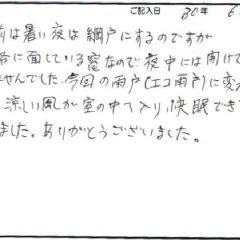 ご記入日 30年 6
前は暑い夜は網戸にするのですが
に面している窓なので夜中には開けて
ませんでした。今回の雨戸(エコ雨戸)に変
涼しい風が室の中へ入り、快眠でき
ました。ありがとうございました。